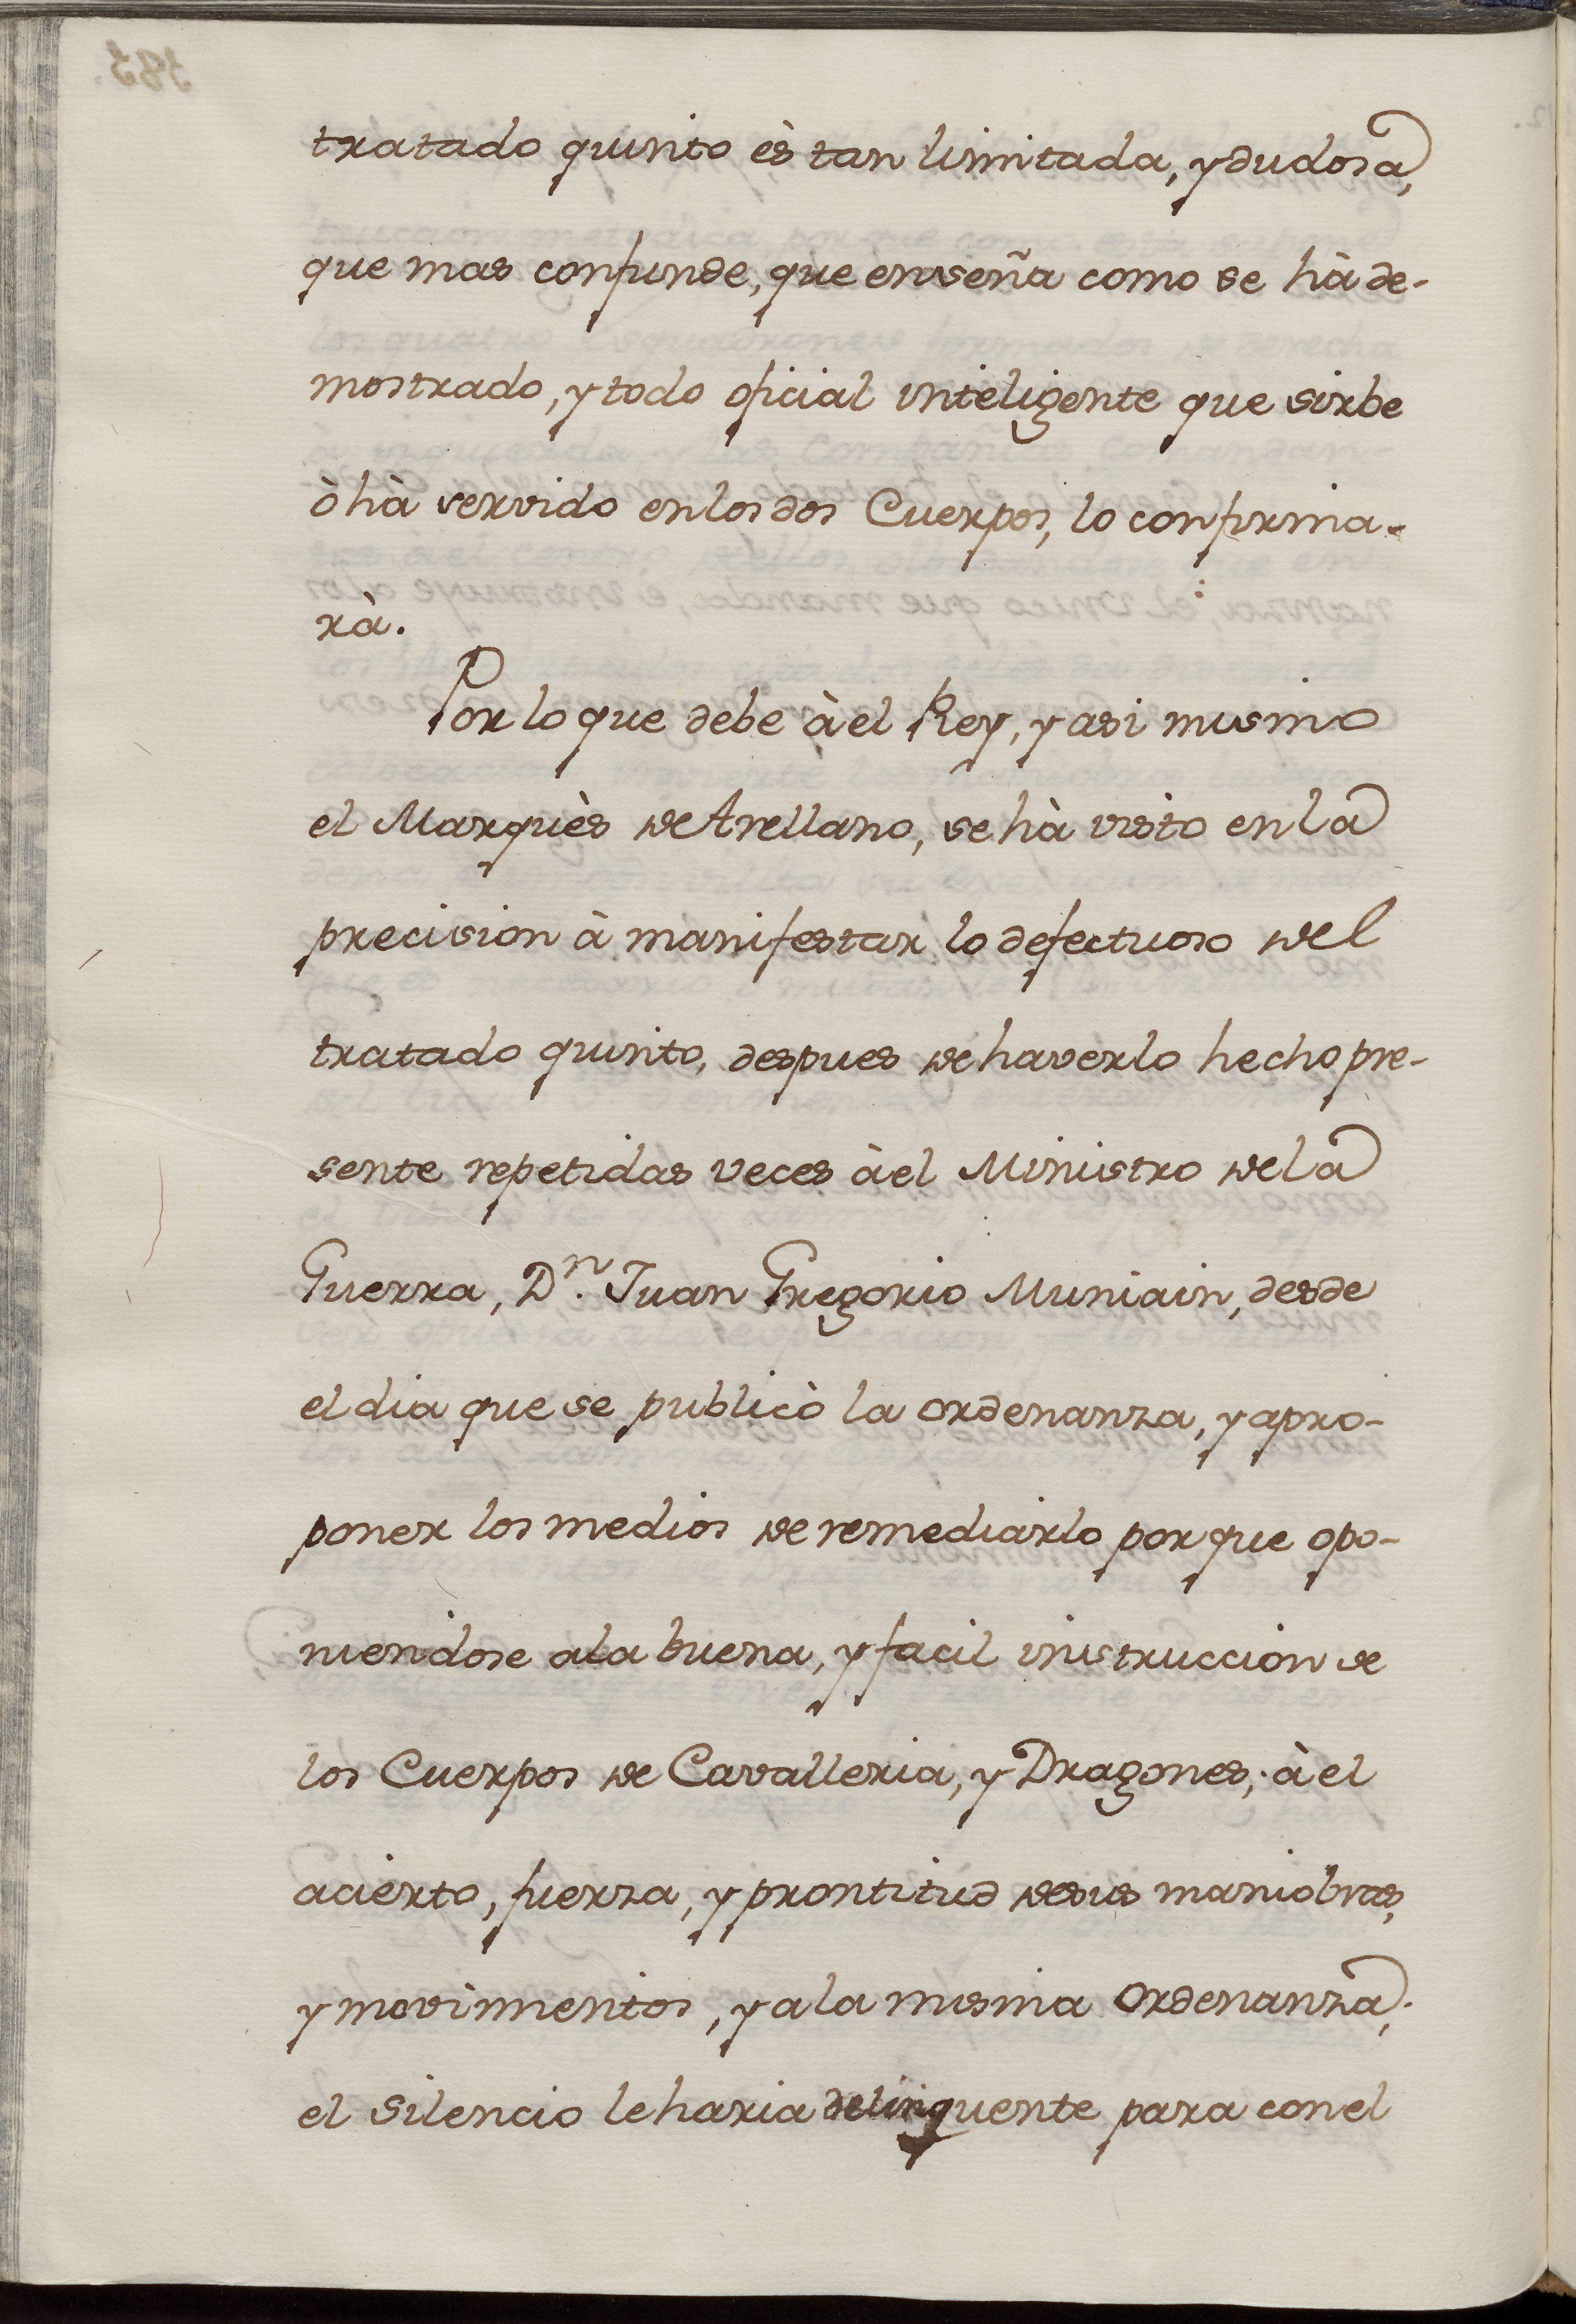 tratado quinto ès tan limitada, y dudosa,
que mas confunde, que enseña como se hà de-
mostrado, y todo oficial inteligente que sirbe
ò hà servido en los dos Cuerpos, lo confirma-
rà.
Por lo que debe à el Rey, y asi mismo
el Marquès de Arellano, se hà visto en la
precision à manifestar lo defectuoso del
tratado quinto, despues de haverlo hecho pre-
sente repetidas veces à el Ministro de la
Guerra, Dn. Juan Gregorio Muniain, desde
el dia que se publicò la ordenanza, y apro-
poner los medios de remediarlo porque opo-
niendose a la buena, y facil instruccion de
los Cuerpos de Cavalleria, y Dragones; à el
acierto, fuerza, y prontitud de sus maniobras,
y movimientos, y a la misma Ordenanza;
el silencio le haria delinquente para con el